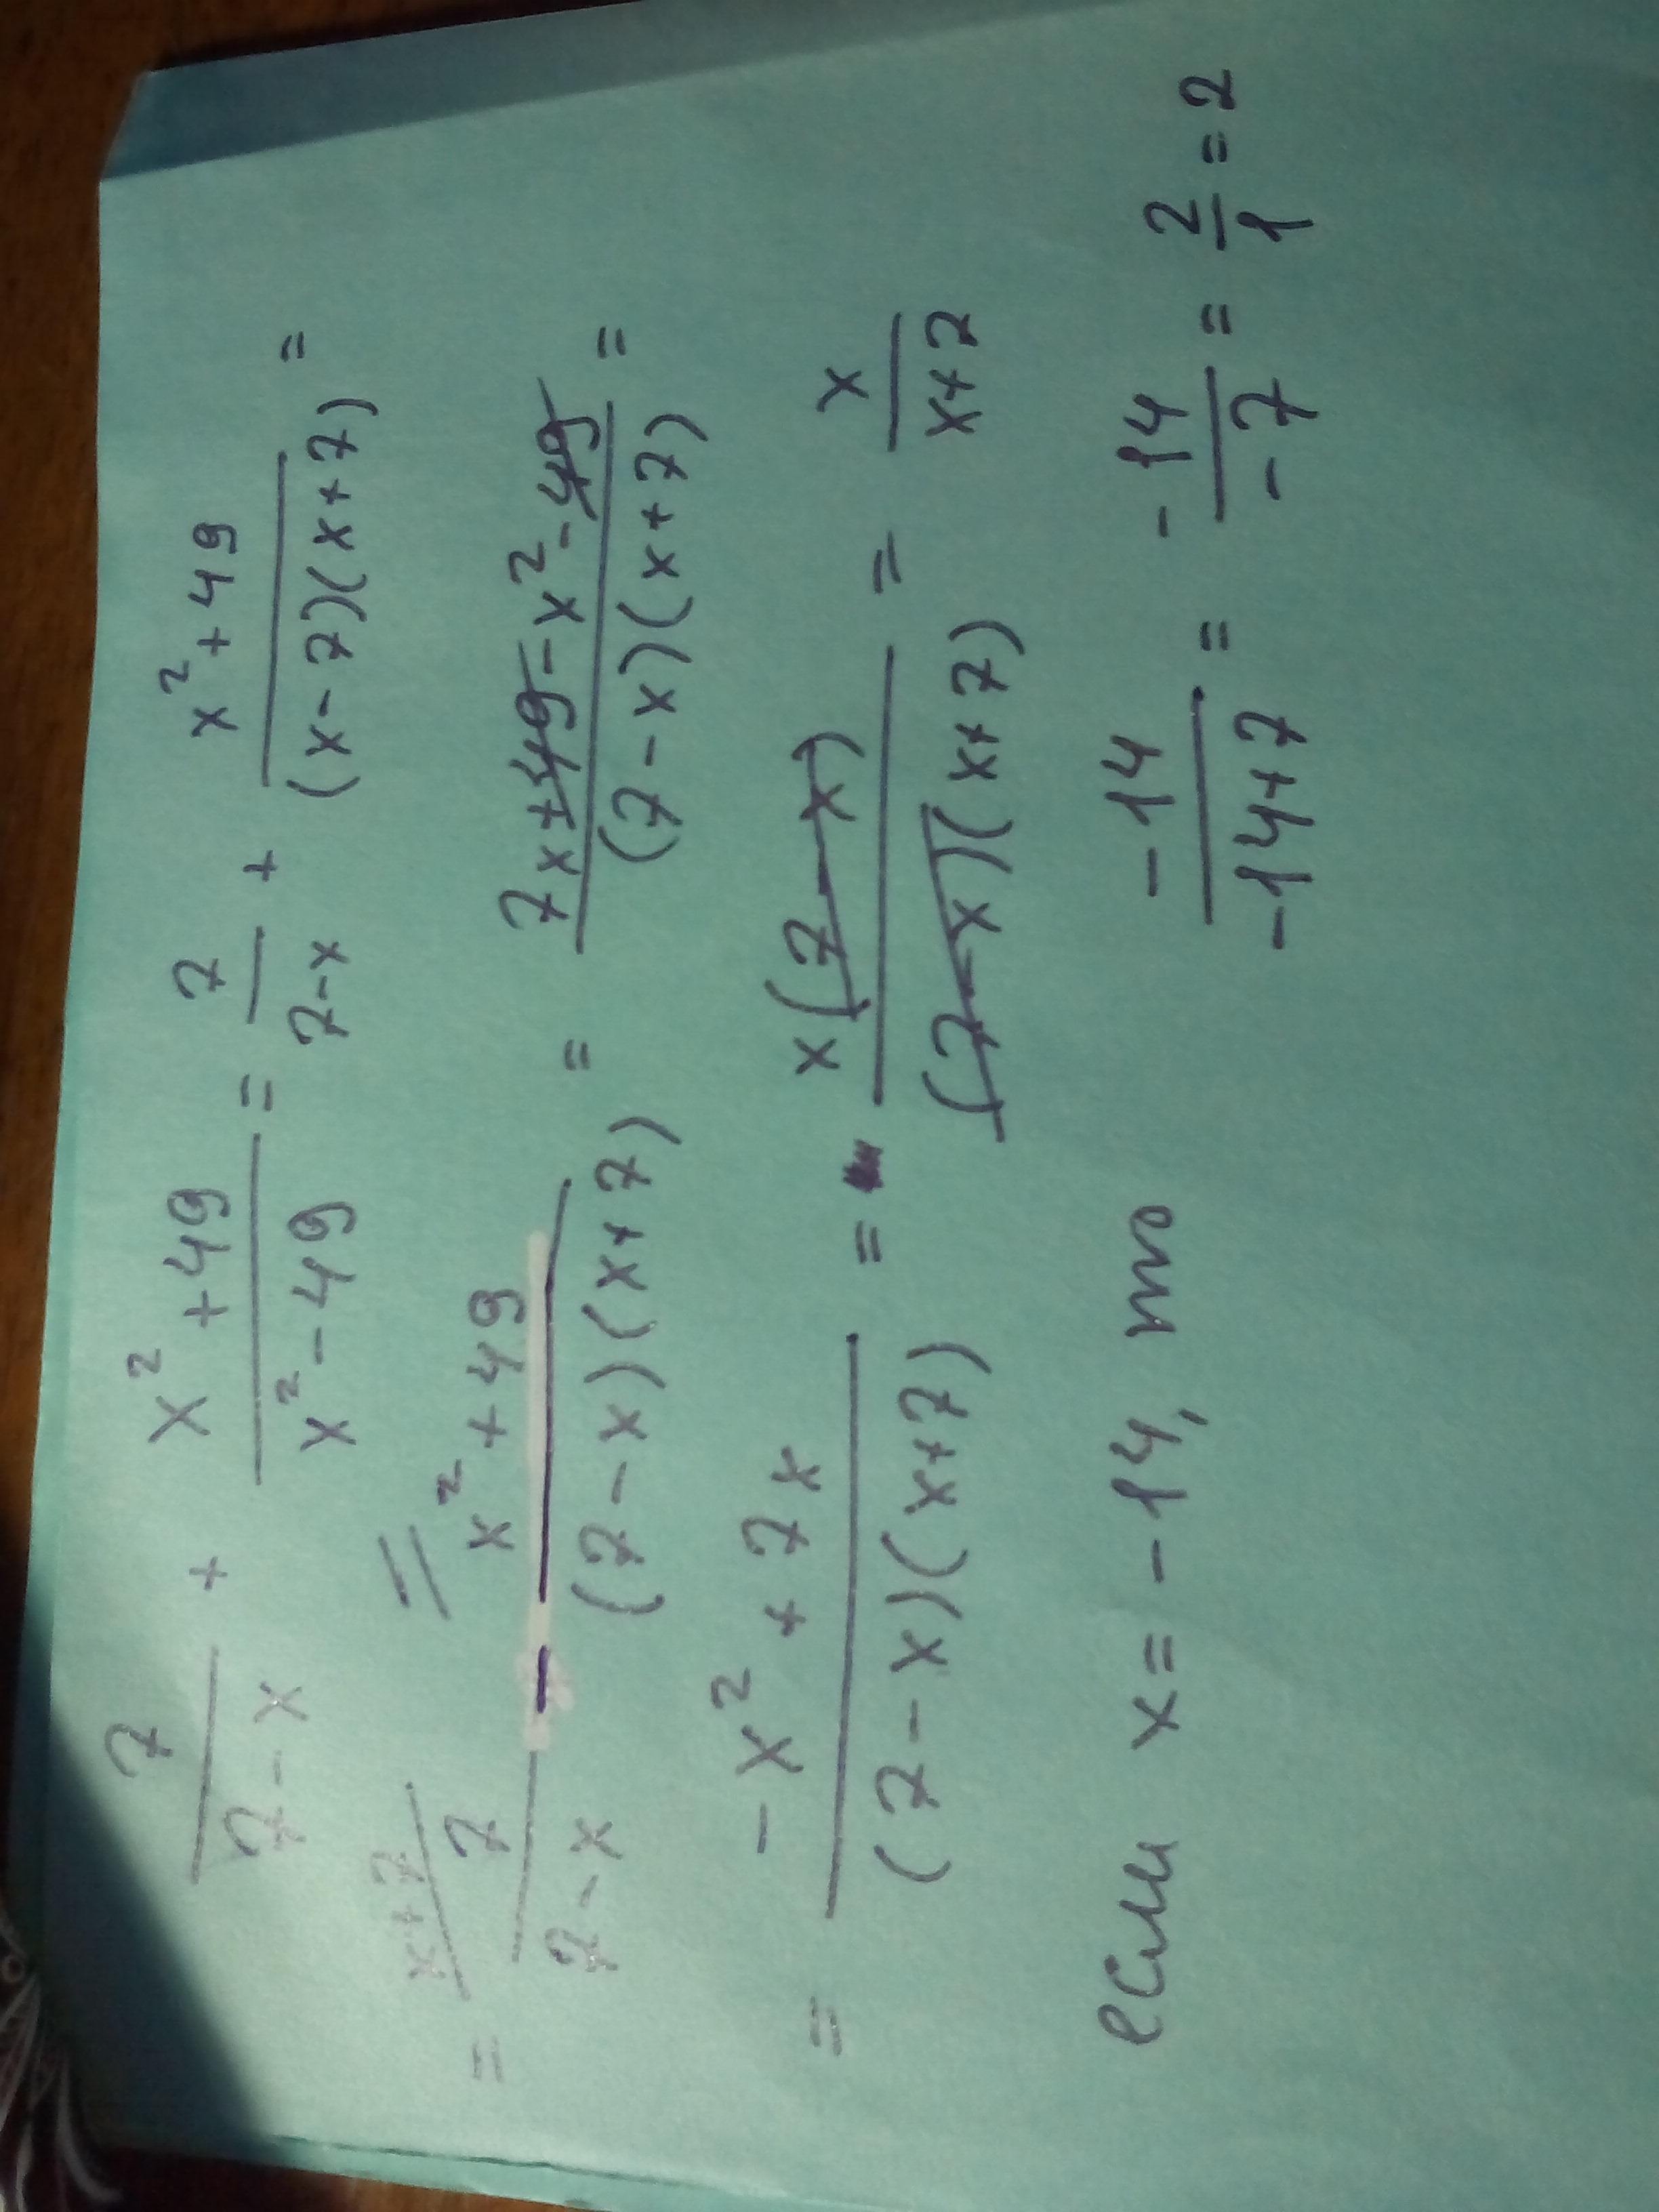 7/(7-x) + (x²+49)/(x²-49) = 7/(7-x) + (x²+49)/((x-7)(x+7)) =
= 7/(7-x) (x+7 - (x²+49)/((7-x)(x+7)) = (7x+49-x²-49)/((7-x)(x+7)) =
= (-x²+7x)/((7-x)(x+7)) = x(7-x)/((7-x)(x+7)) = x/(x+7)
если x=-14, то -14/(-14+7) = -14/-7 = 2/1 = 2